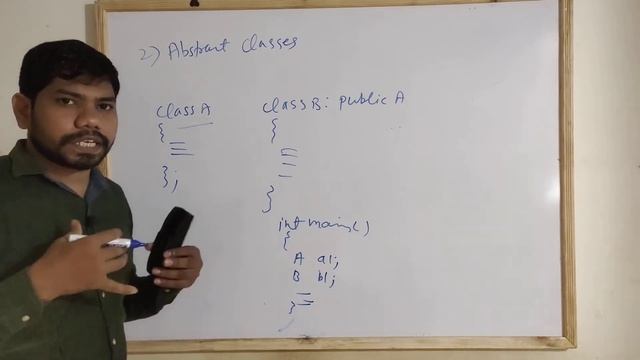 2) Abstract Classes
class A
{
};
class B: public A
{
}
int main()
{
A a1;
B b1;
}